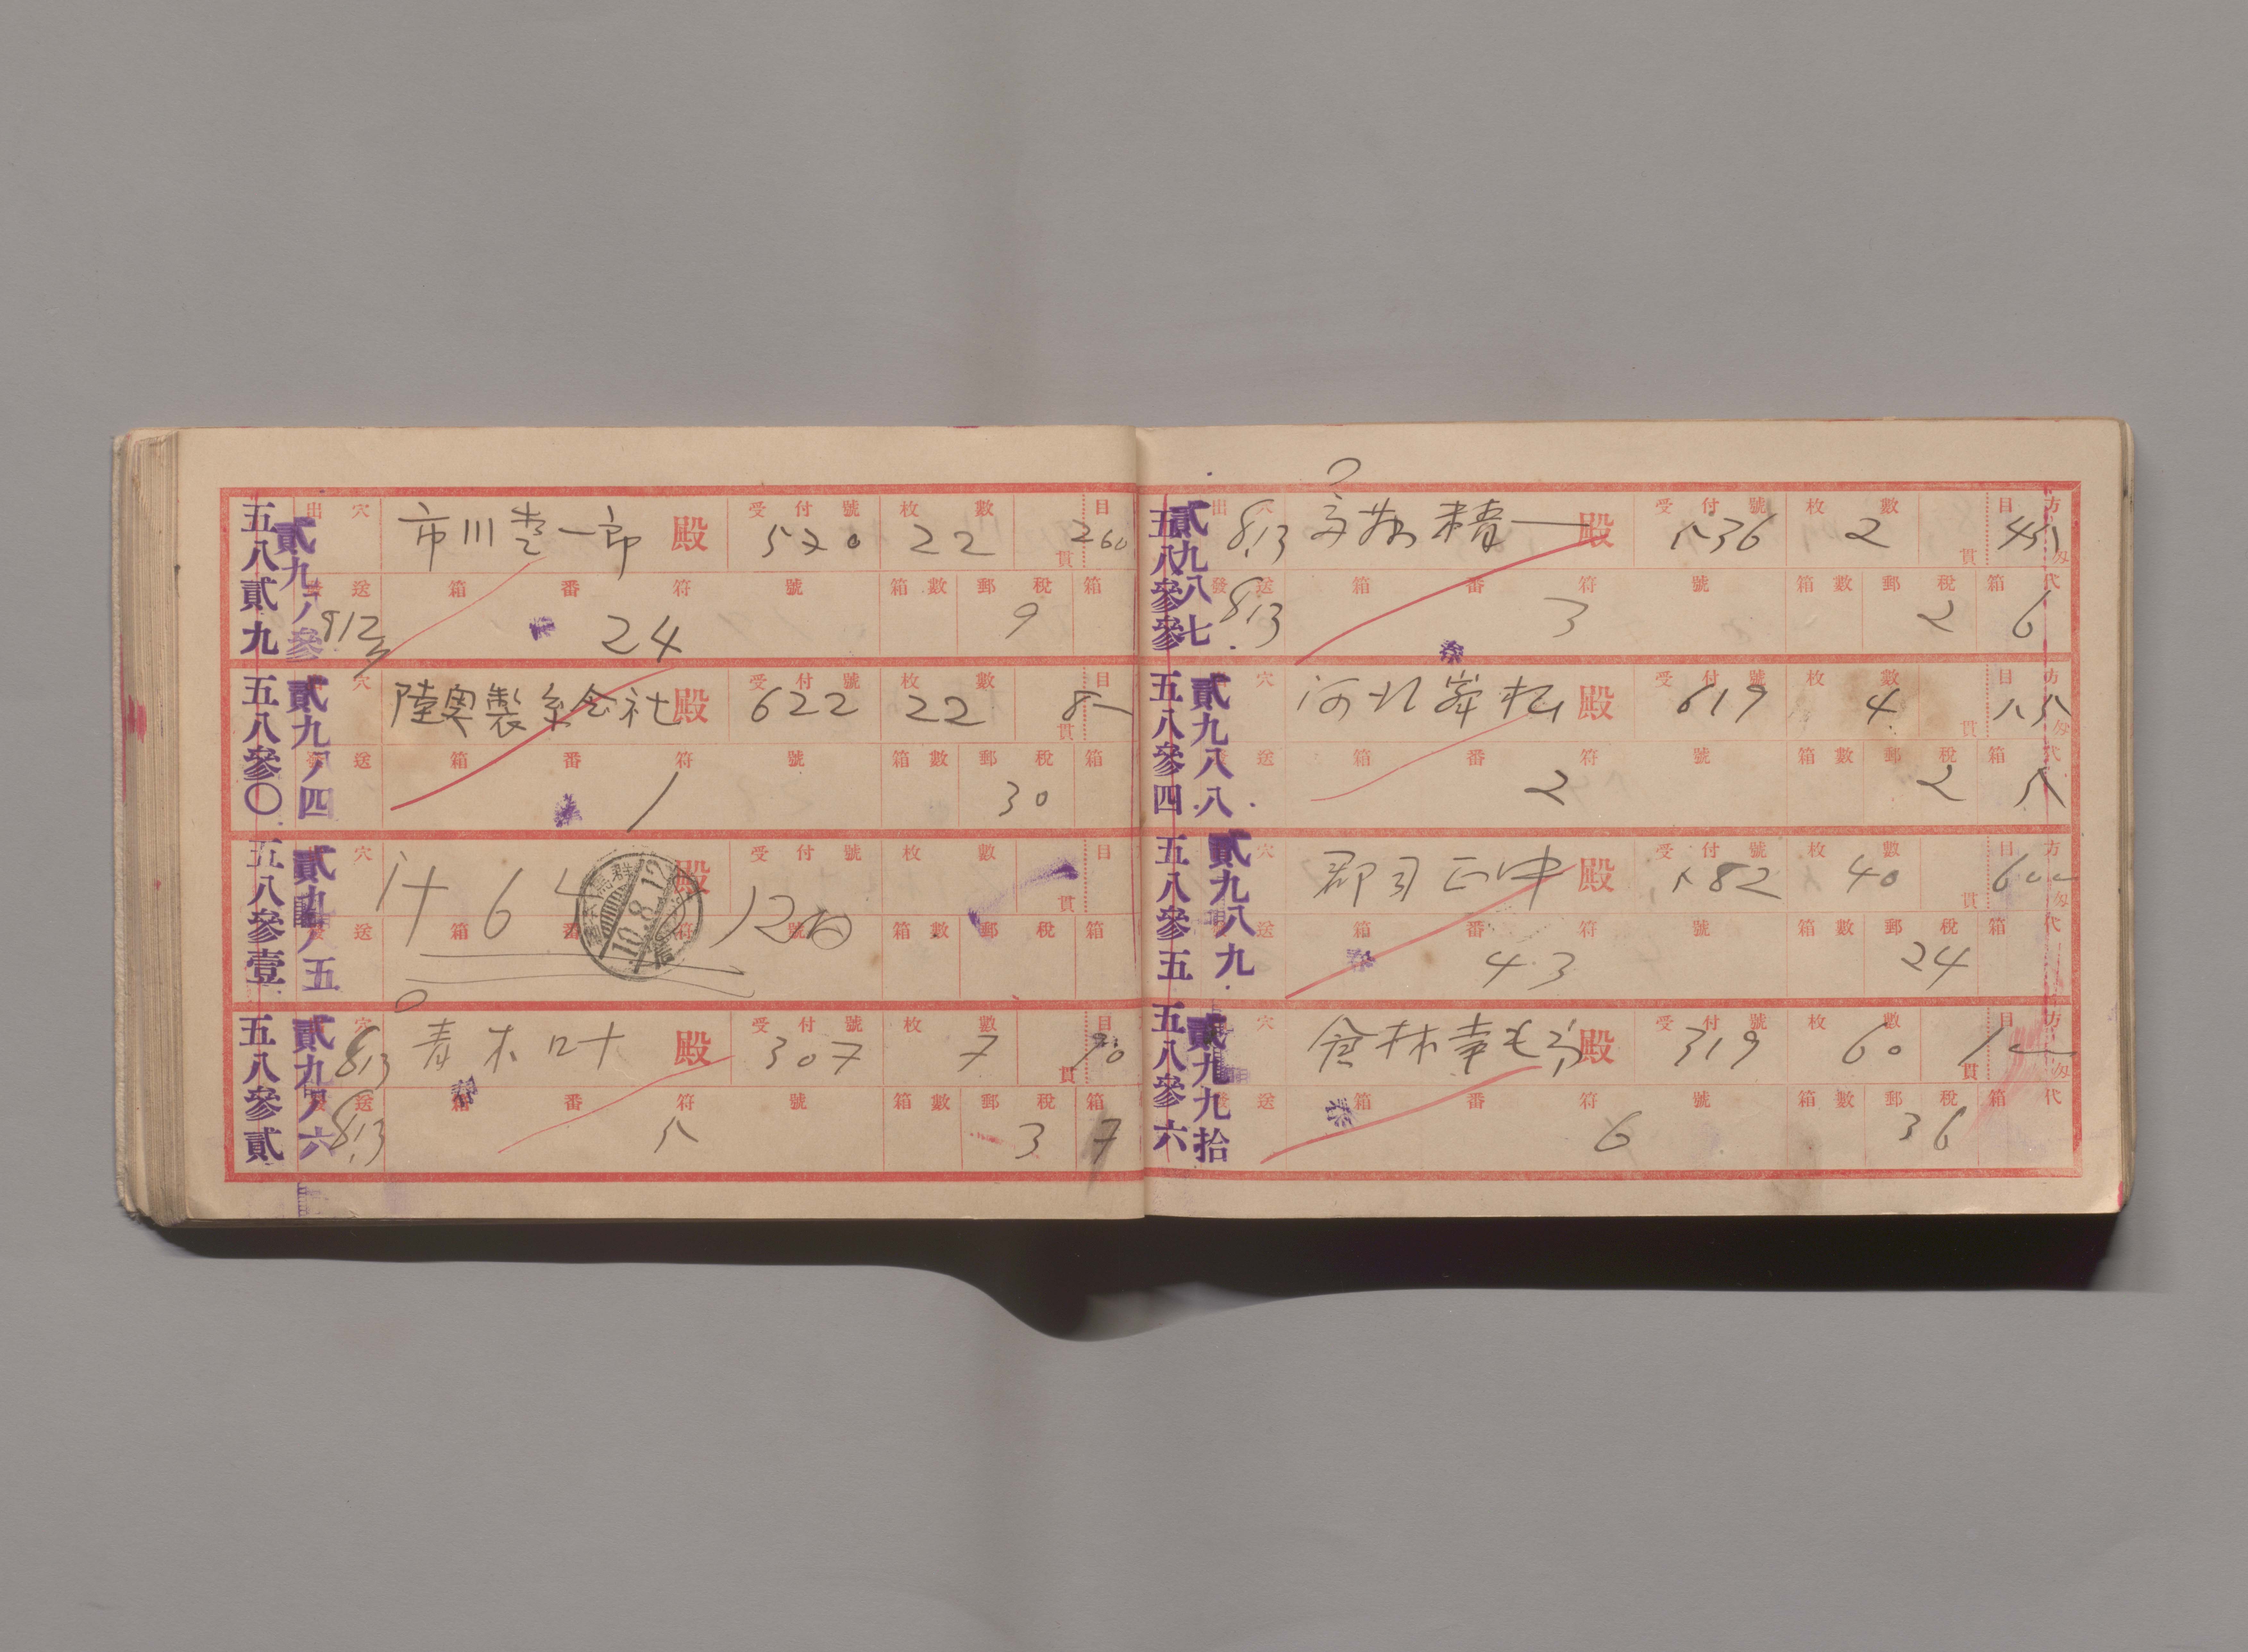 五八貳九
出穴 市川 一郎 殿 受付號 520 枚數 22 貫目 260
發送 812 箱番符號 24 箱數 郵稅 9 箱
五八參〇
貳九ノ四
穴 陸奥製糸会社 殿 受付號 622 枚數 22 貫目 8
送 箱番符號 1 箱數 郵稅 30 箱
五八參壹
貳九ノ五
穴 計 64 殿 受付號 枚數 貫目
送 箱番符號 12 箱數 郵稅 箱
群馬 10.8.12
五八參貳
貳九ノ六
穴 813 青木叶 殿 受付號 307 枚數 7 貫目 70
送 813 箱番符號 5 箱數 郵稅 3 箱 7
五八參參
貳九八七
出穴 813 精一 殿 受付號 536 枚數 2 貫目 45 方匁
發送 813 箱番符號 3 箱數 郵稅 2 箱代 6
五八參四
貳九八八
穴 河北 松 殿 受付號 619 枚數 4 貫目 55 方匁
送 箱番符號 2 箱數 郵稅 2 箱代 5
五八參五
貳九八九
穴 郡司正中 殿 受付號 582 枚數 40 貫目 600 方匁
送 箱番符號 43 箱數 郵稅 24 箱代
五八參六
貳九九拾
穴 林幸 殿 受付號 319 枚數 60 貫目 1 方匁
發送 箱番符號 6 箱數 郵稅 36 箱代